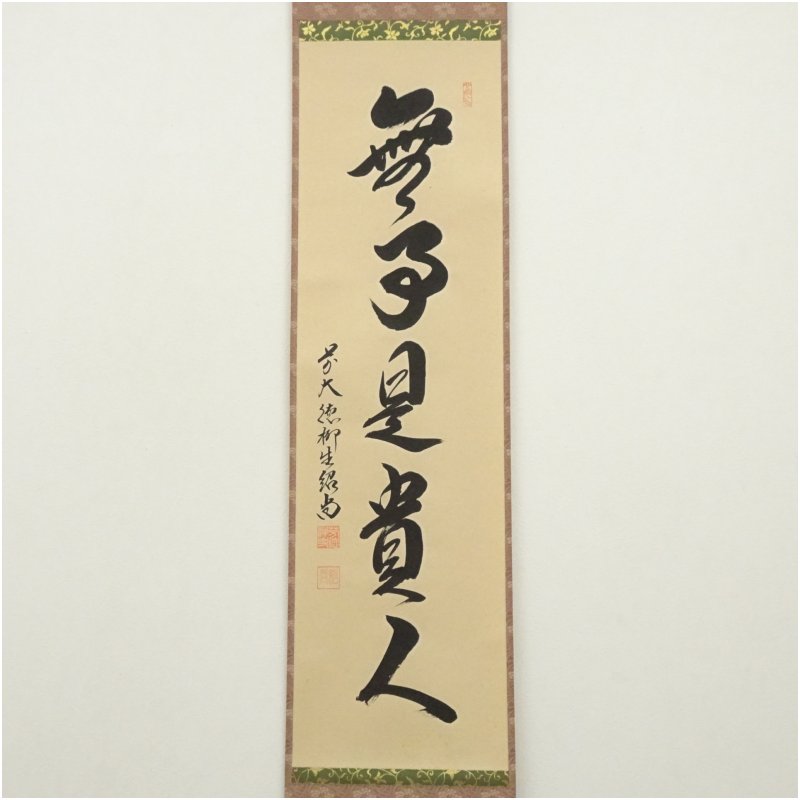 無事是貴人
前大徳柳生紹尚